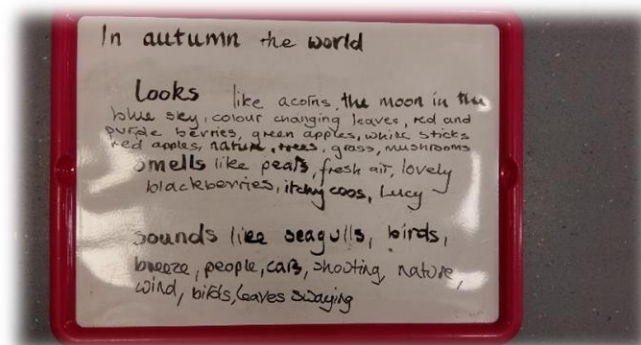 In autumn the world
Looks like acorns, the moon in the
blue sky, colour changing leaves, red and
purple berries, green apples, white sticks
red apples, nature, trees, grass, mushrooms
smells like pears, fresh air, lovely
blackberries, itchy coos, Lucy
sounds like seagulls, birds,
breeze, people, cars, shouting, nature,
wind, birds, leaves swaying